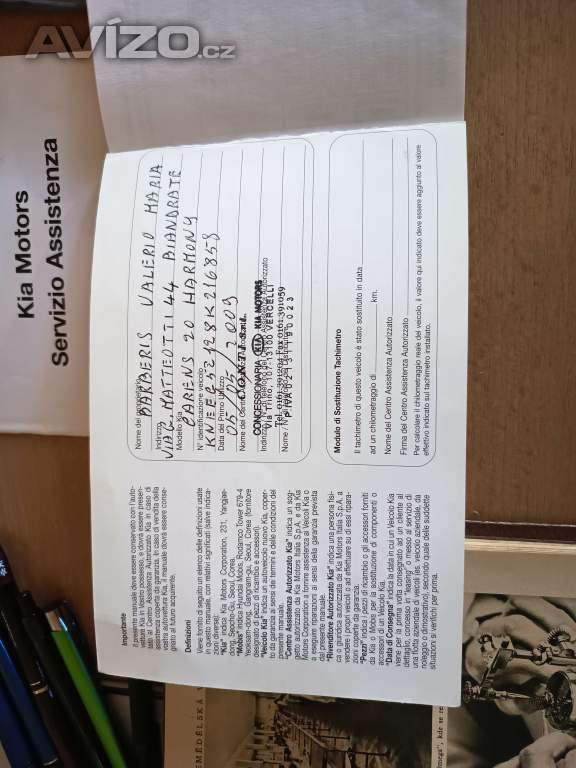 AVÍZO.cz
Kia Motors
Servizio Assistenza
Importante
Il presente manuale deve essere conservato con l'auto-
vettura in vostro possesso, e dovrà essere presen-
tato al Centro Assistenza Autorizzato Kia in caso di
assistenza coperta da garanzia. In caso di vendita della
vostra autovettura Kia, il manuale dovrà essere conse-
gnato al futuro acquirente.
Definizioni
Viene fornito di seguito un elenco delle definizioni usate
in questo manuale, con relativi significati (salve indica-
zioni diverse):
"Kia" indica Kia Motors Corporation, 231, Yangjae-
dong, Seocho-Gu, Seoul, Corea.
"Mobis" indica Hyundai Mobis, Rosanno Tower 679-4
Yeoksam-dong, Gangnam-gu, Seoul, Corea (fornitore
designato di pezzi di ricambio e accessori).
"Veicolo Kia" indica un autoveicolo nuovo Kia, coper-
to da garanzia ai sensi dei termini e delle condizioni del
presente manuale.
"Centro Assistenza Autorizzato Kia" indica un sog-
getto autorizzato da Kia Motors Italia S.p.A. e da Kia
Motors Corporation a fornire assistenza ai Veicoli Kia o
a eseguire riparazioni ai sensi della garanzia prevista
dal presente manuale.
"Rivenditore Autorizzato Kia" indica una persona fisi-
ca o giuridica autorizzata da Kia Motors Italia S.p.A. a
vendere i propri veicoli o ad effettuare su di essi ripara-
zioni coperte da garanzia.
"Pezzi" indica i pezzi di ricambio o gli accessori forniti
da Kia o Mobis per la sostituzione di componenti o
accessori di un Veicolo Kia.
"Data di Consegna" indica la data in cui un Veicolo Kia
viene per la prima volta consegnato ad un cliente al
dettaglio, concesso in "leasing" o messo al servizio di
una flotta aziendale di veicoli (es. veicolo aziendale, da
noleggio o dimostrativo), secondo quale delle suddette
situazioni si verifichi per prima.
Nome del proprietario
BARBERIS VALERIO MARIA
Indirizzo
VIA G. MATTEOTTI 44 BIANDRATE
Modello Kia
CARENS 20 HARMONY
N° identificazione veicolo
Data del Primo Utilizzo
05/05/2009
Nome del Centro
CONCESSIONARIA KIA MOTORS
Via Trino, 107-13100 VERCELLI
Modulo di Sostituzione Tachimetro
Il tachimetro di questo veicolo è stato sostituito in data
ad un chilometraggio di km.
Nome del Centro Assistenza Autorizzato
Firma del Centro Assistenza Autorizzato
Per calcolare il chilometraggio reale del veicolo, il valore qui indicato deve essere aggiunto al valore
effettivo indicato sul tachimetro installato.
EMĚDĚLSKÁ V